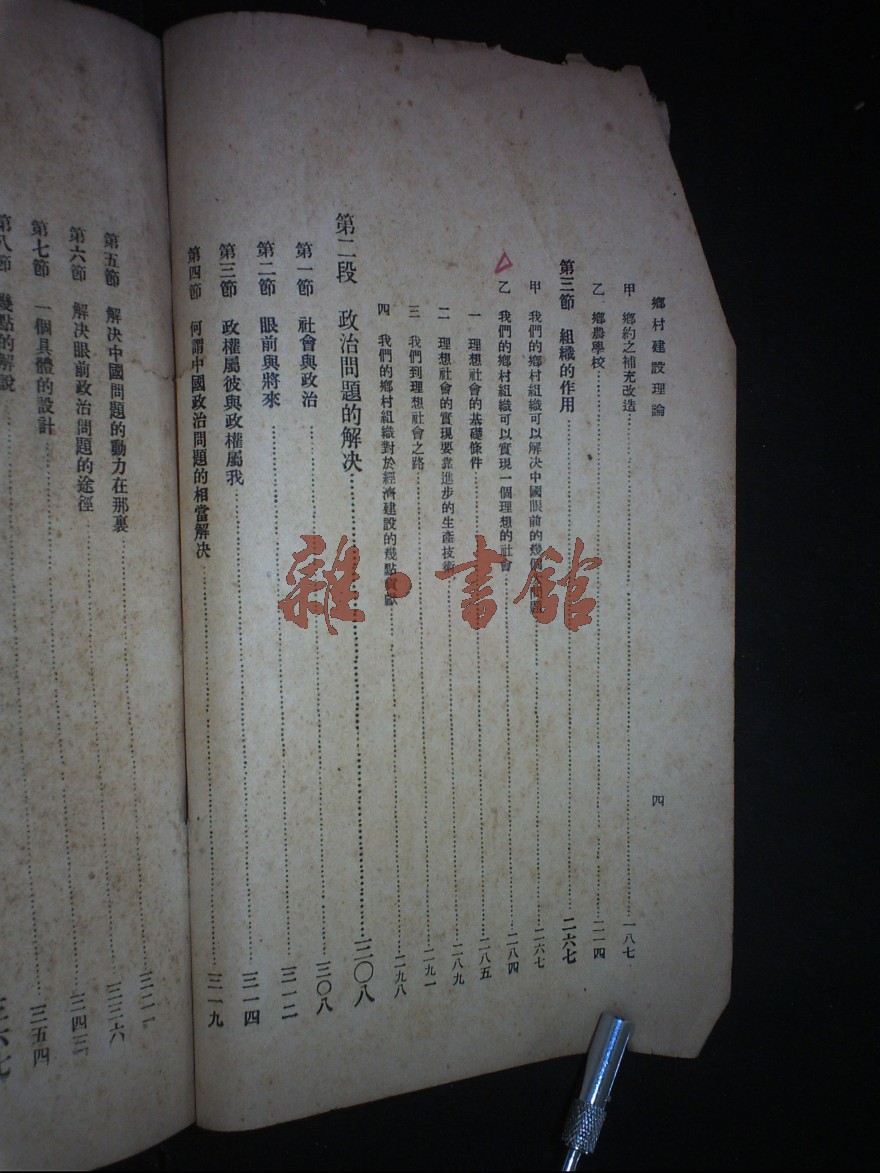 鄉村建設理論
四
甲 鄉約之補充改造 一八七
乙 鄉農學校 二一四
第三節 組織的作用 二六七
甲 我們的鄉村組織可以解决中國眼前的幾個 二六七
乙 我們的鄉村組織可以實現一個理想的社會 二八四
一 理想社會的基礎條件 二八五
二 理想社會的實現要靠進步的生產技術 二八九
三 我們到理想社會之路 二九一
四 我們的鄉村組織對於經濟建設的幾點 二九八
第二段 政治問題的解决 三〇八
第一節 社會與政治 三〇八
第二節 眼前與將來 三一二
第三節 政權屬彼與政權屬我 三一四
第四節 何謂中國政治問題的相當解决 三一九
第五節 解决中國問題的動力在那裏
第六節 解决眼前政治問題的途徑
第七節 一個具體的設計 三五四
第八節 幾點的解說 三六七
雜·書館